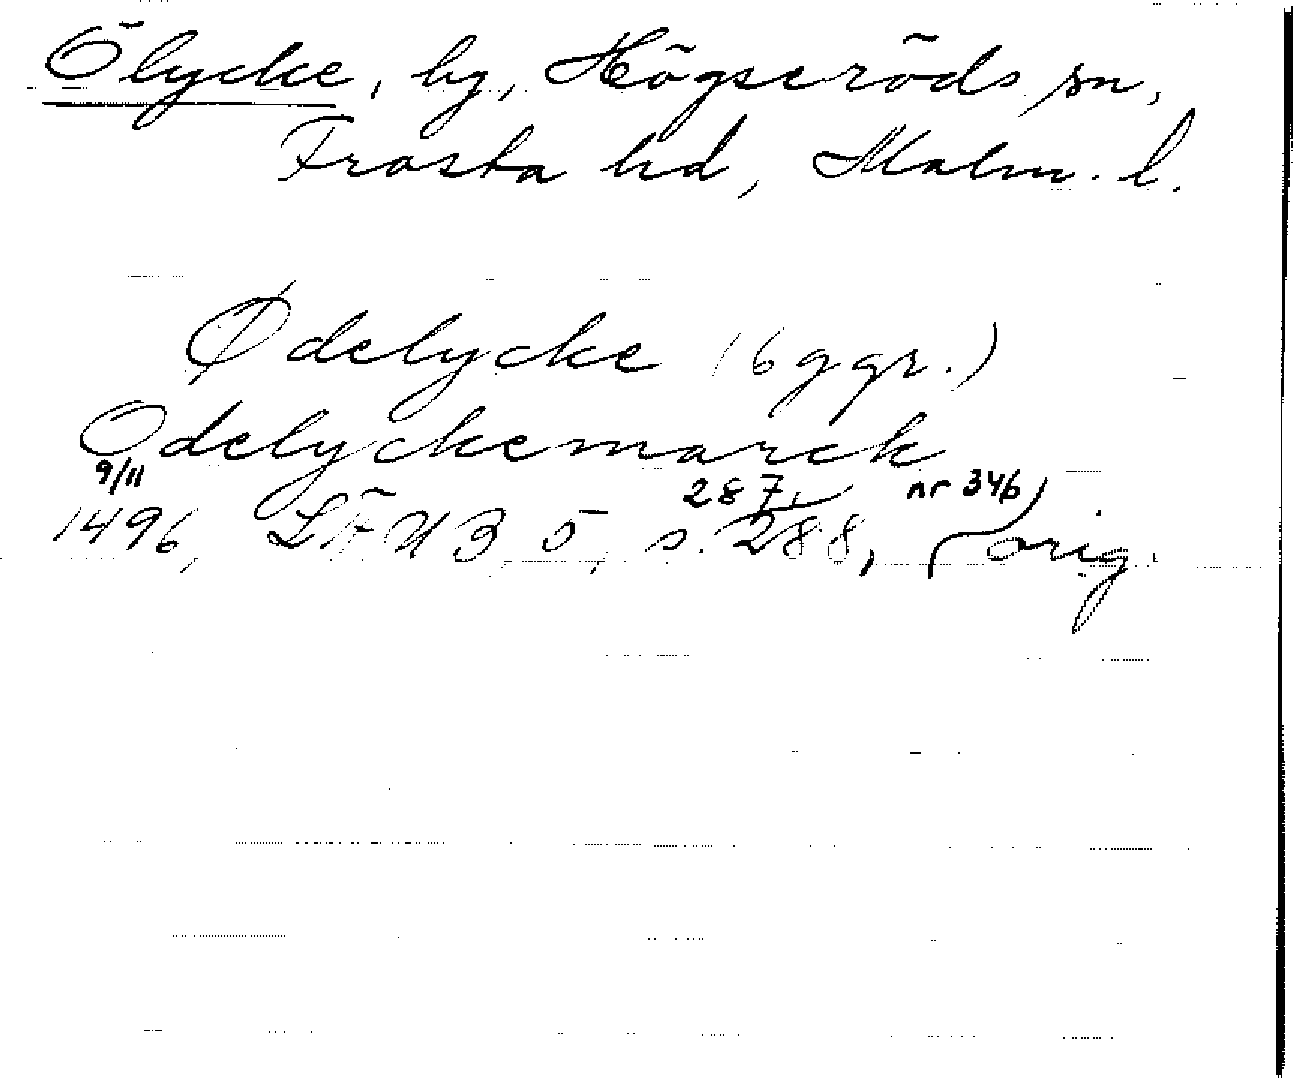 Ölycke, by, Högseröds sn,
Frosta hd, Malm. l.
Ødelycke (6 ggr.)
Odelyckemarck
9/11 287, nr 346)
1496, LÄUB 5, s. 288, (orig.